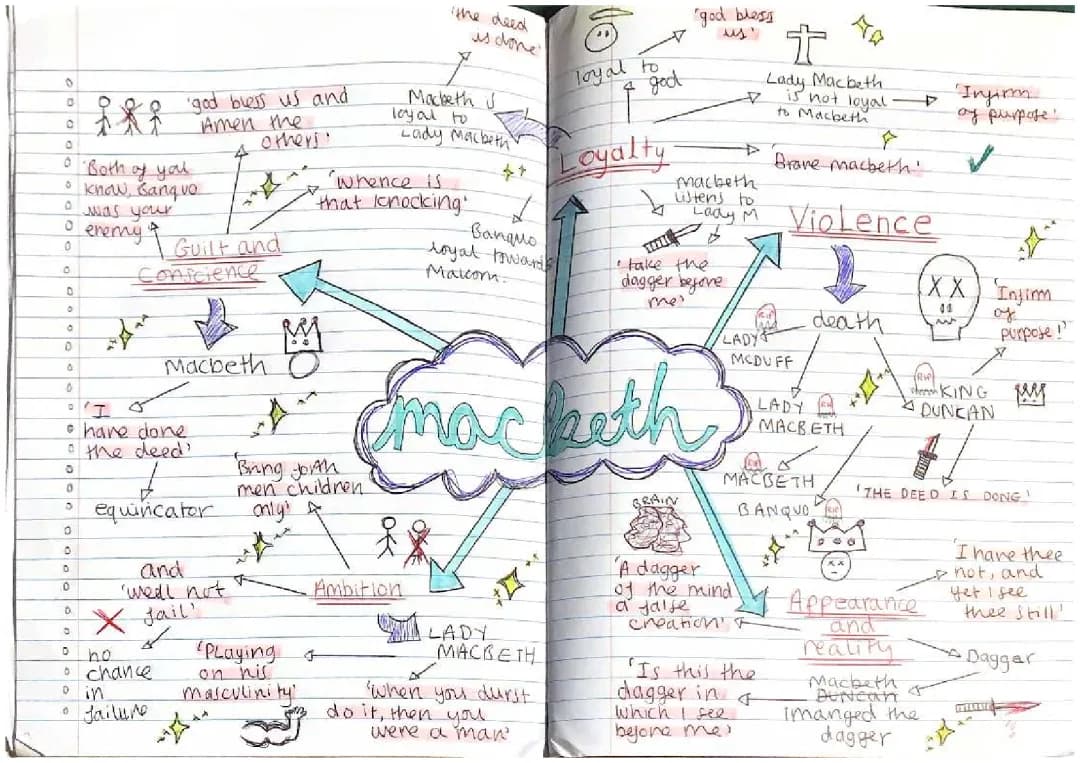 macbeth
'the deed
is done'
Macbeth is
loyal to
Lady Macbeth
'god bless us and
Amen the
others'
'Both of you
know, Banquo
was your
enemy'
'Whence is
that knocking'
Guilt and
conscience
Macbeth
'I
have done
the deed'
equivicator
Banquo
loyal towards
Malcom.
'Bring forth
men children
only'
Ambition
and
'we'll not
fail'
no
chance
in
failure
LADY
MACBETH
'Playing
on his
masculinity'
'When you durst
do it, then you
were a man'
'god bless
us'
loyal to
god
Lady Macbeth
is not loyal
to Macbeth
'Infirm
of purpose'
Loyalty
'Brave macbeth'
Macbeth
listens to
Lady M
'take the
dagger before
me'
Violence
death
RIP
LADY
MCDUFF
LADY RIP
MACBETH
RIP
MACBETH
BANQUO RIP
RIP
KING
DUNCAN
'Infirm
of
purpose!'
'THE DEED IS DONE'
BRAIN
'A dagger
of the mind
a false
creation'
Appearance
and
reality
'I have thee
not, and
yet I see
thee still'
Dagger
Macbeth
DUNCAN
imanged the
dagger
'Is this the
dagger in
which I see
before me'